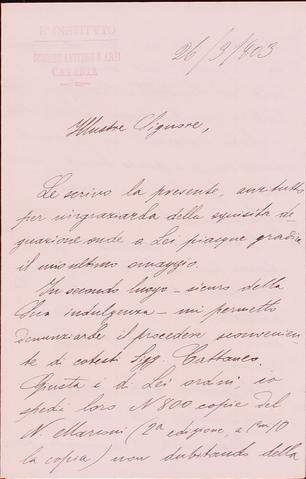 L'ISTITUTO
SCIENZE LETTERE E ARTI
CATANIA
26/9/903
Illustre Signore,
Le scrivo la presente, anzitutto
per ringraziarla della squisita de
gnazione onde a Lei piacque gradire
il mio ultimo omaggio.
In secondo luogo – sicuro della
Sua indulgenza – mi permetto
denunziarle il procedere sconvenien
te di cotesti Sigg. Cattaneo.
Giusta i di Lei ordini, io
spedii loro N 800 copie del
N. Marconi (2a edizione, a cm/10
la copia) non dubitando della